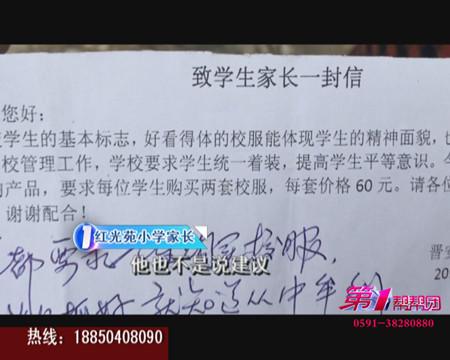 致学生家长一封信
您好：
学生的基本标志，好看得体的校服能体现学生的精神面貌，也
校管理工作，学校要求学生统一着装，提高学生平等意识。今
的产品，要求每位学生购买两套校服，每套价格 60 元。请各位
谢谢配合！
晋安
20
都要
校服，
就知道从中牟利
1
红光苑小学家长
他也不是说建议
第1帮帮团
0591-38280880
热线：18850408090